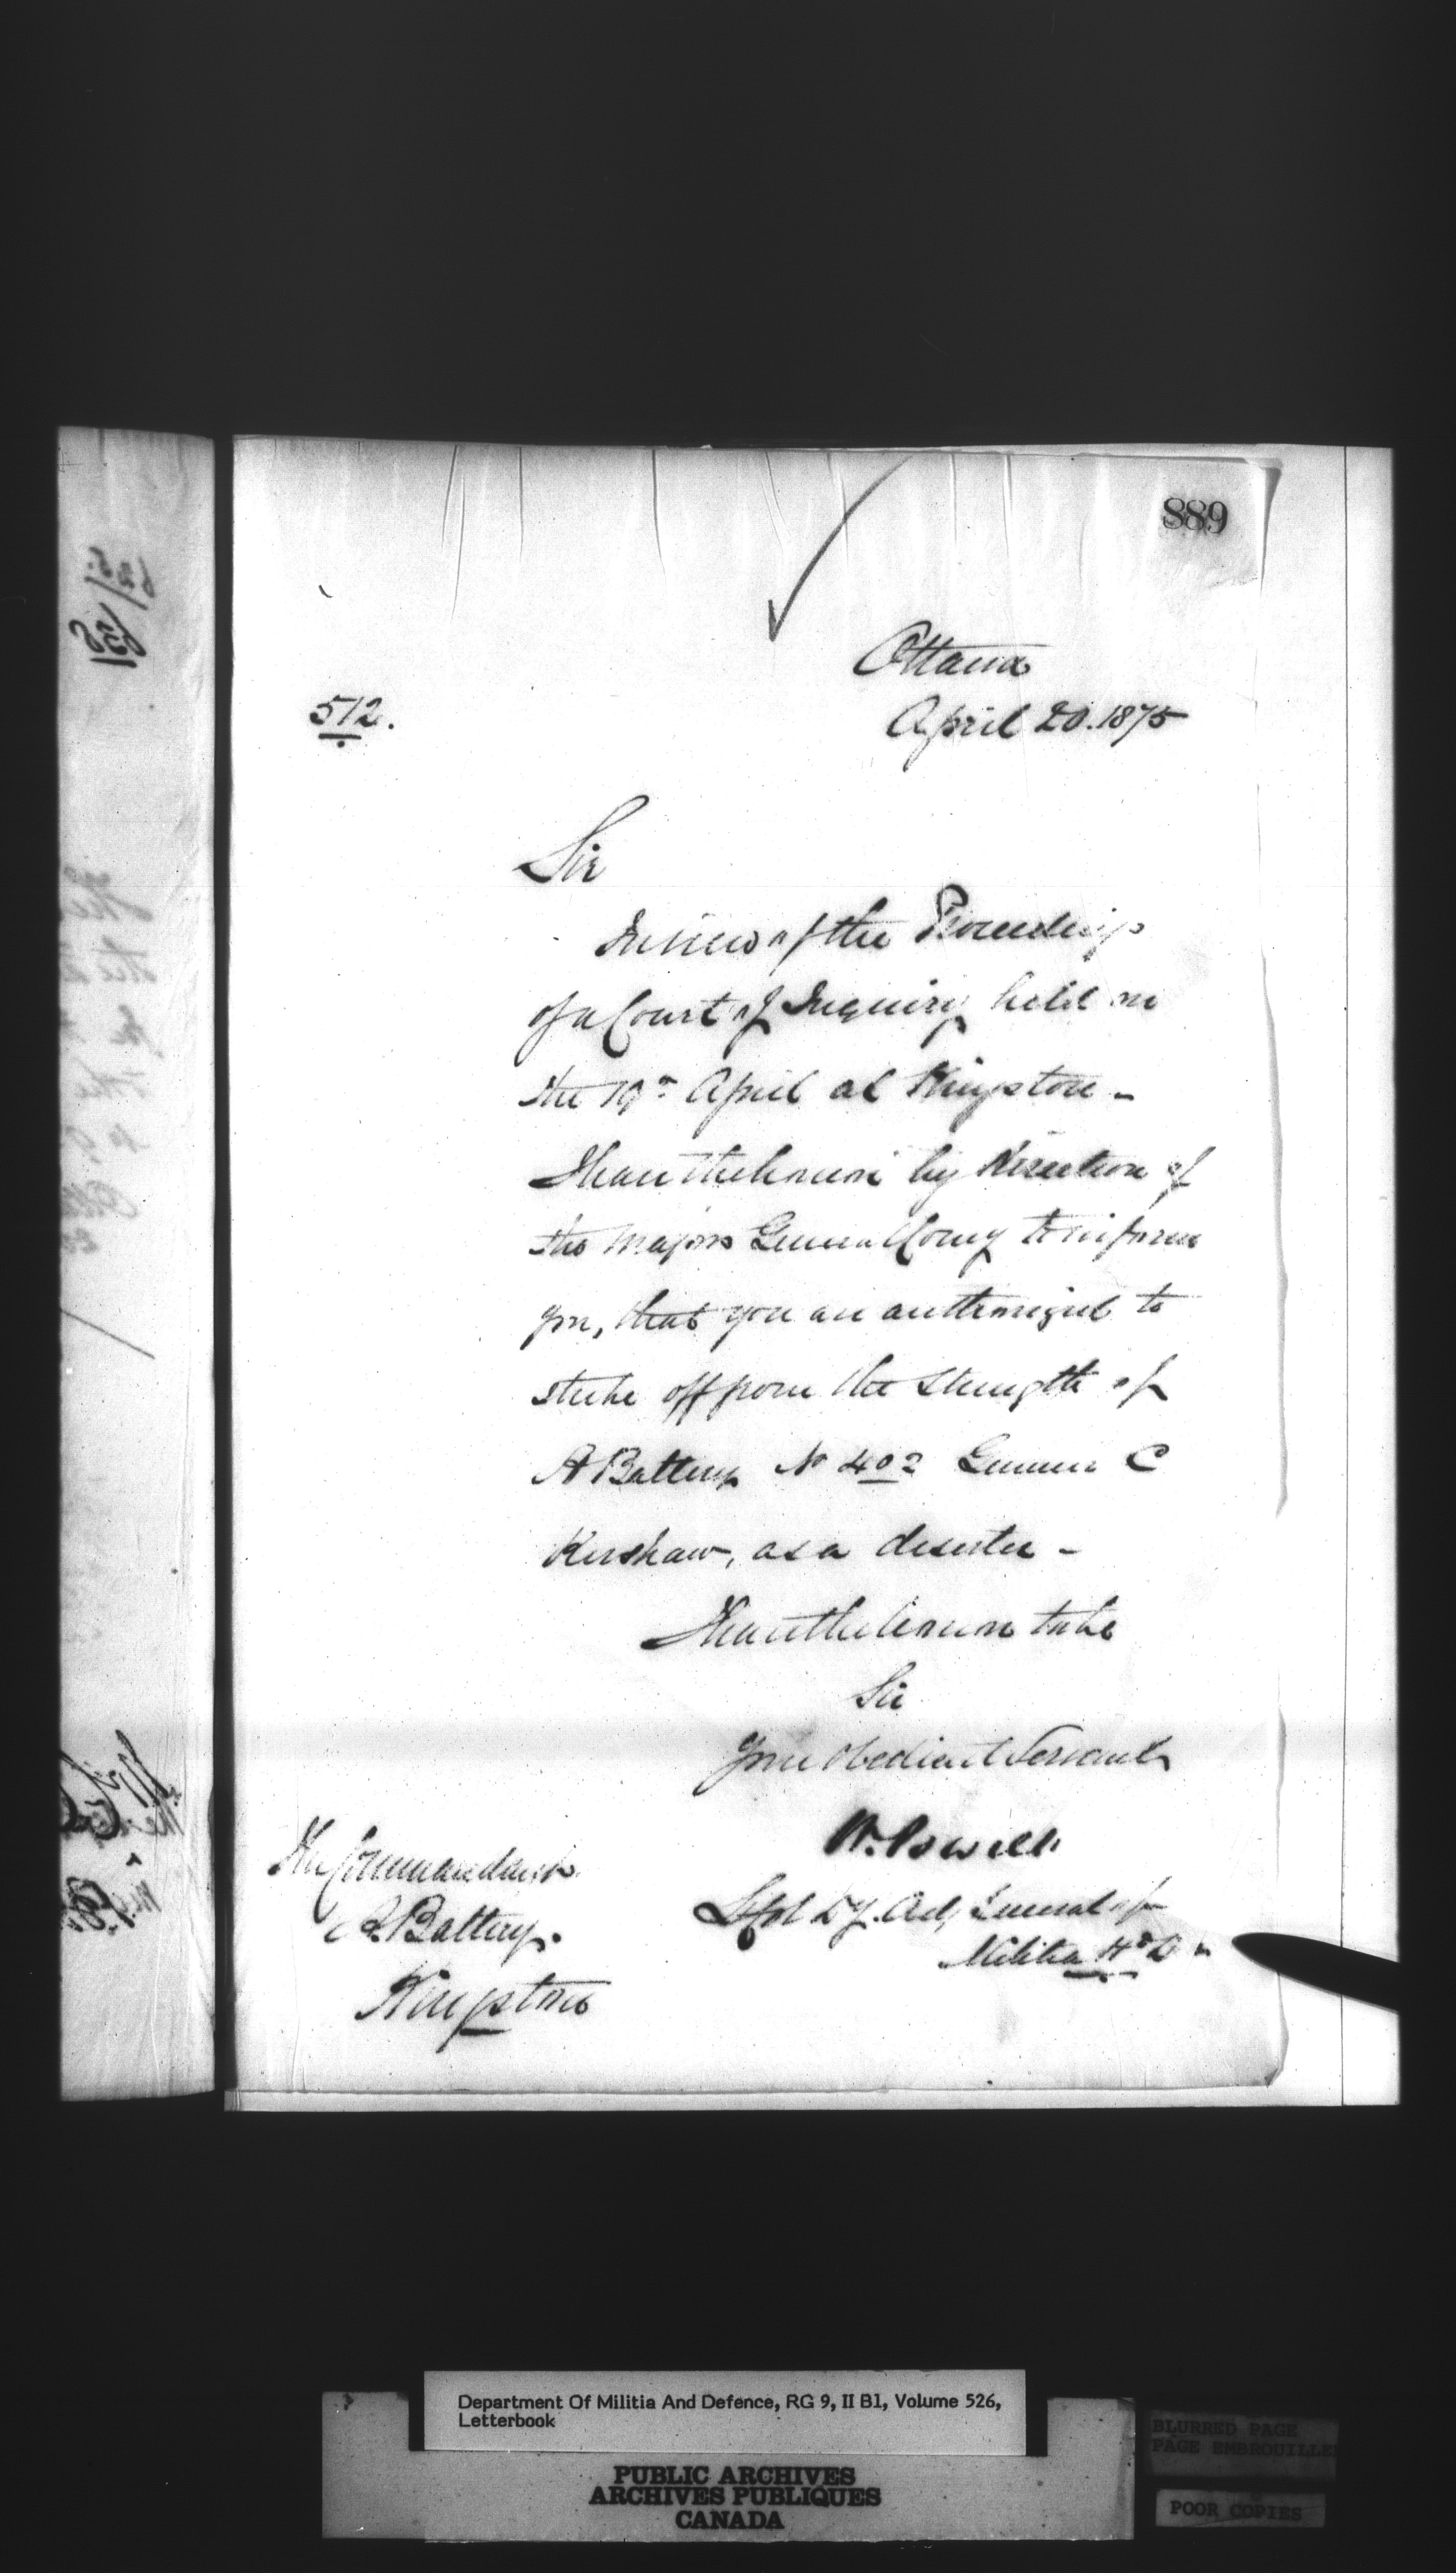 889
Ottawa
512.
April 20. 1875
Sir
In view of the Proceedings
of a Court of Inquiry held on
the 19th April at Kingston -
I have the honor by direction of
the Major General Comg to inform
you, that you are authorized to
strike off from the strength of
A Battery No 402 Gunner C
Kershaw, as a deserter -
I have the honor to be
Sir
Your Obedient Servant
W. Powell
Lt Col Dy. Adj. General of
Militia Hd Qrs
The Commandant
A. Battery.
Kingston
Department Of Militia And Defence, RG 9, II B1, Volume 526,
Letterbook
PUBLIC ARCHIVES
ARCHIVES PUBLIQUES
CANADA
BLURRED PAGE
PAGE EMBROUILLE
POOR COPIES